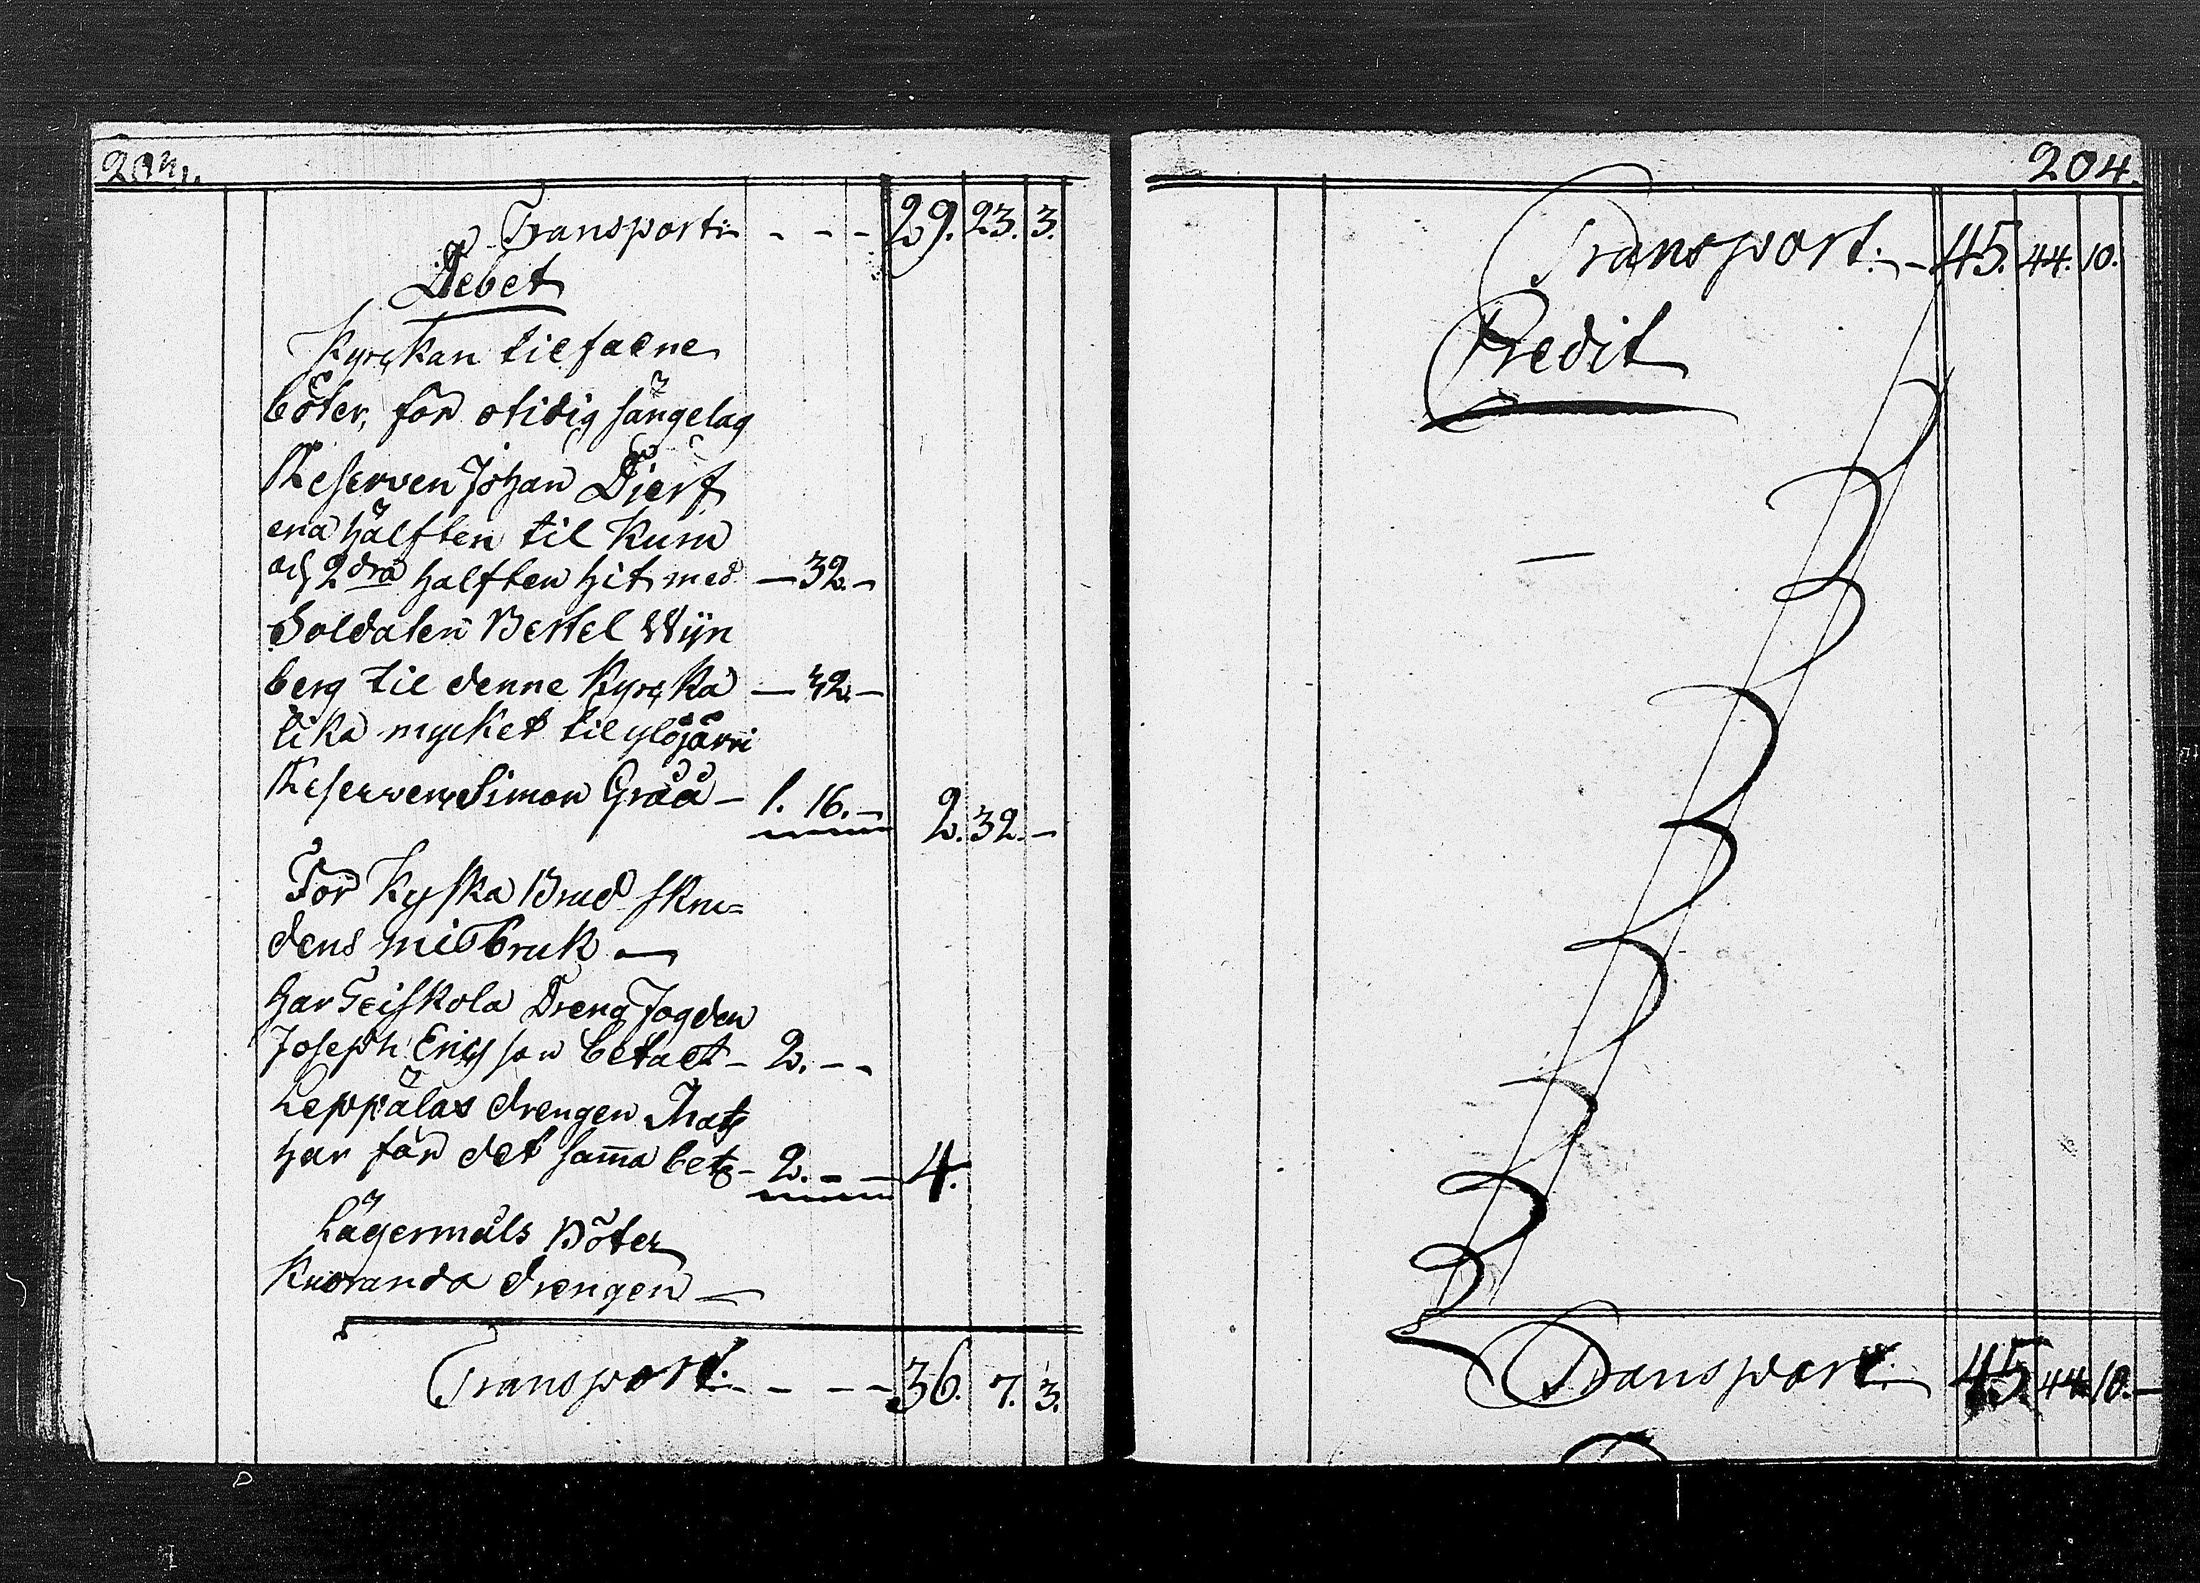 204.
Transport: - - - 29. 23. 3.
Debet
Kyrckan tilfalne
böter, för otidig sängelag
Reserven Johan Djerf
ena hälften til Kum
och 2dra halften hit med — 32. —
Soldaten Bertel Wijn
berg til denne Kyrcka — 32. —
lika mycket til ylöjärvi
Reserven Simon Gråå — 1. 16. — 2. 32. —
För Kyska Brud skru=
dens misbruk —
har Teiskola Dreng Fogden
Joseph Ericsson betalt — 2. - -
Leppälax drengen Mats
har för det samma bet. — 2. - - 4.
Lägermåls Böter
Kuoranda drengen —
Transport: - - - 36. 7. 3.
204.
Transport: - 45. 44. 10.
Credit
Transport: 45 44 10. —